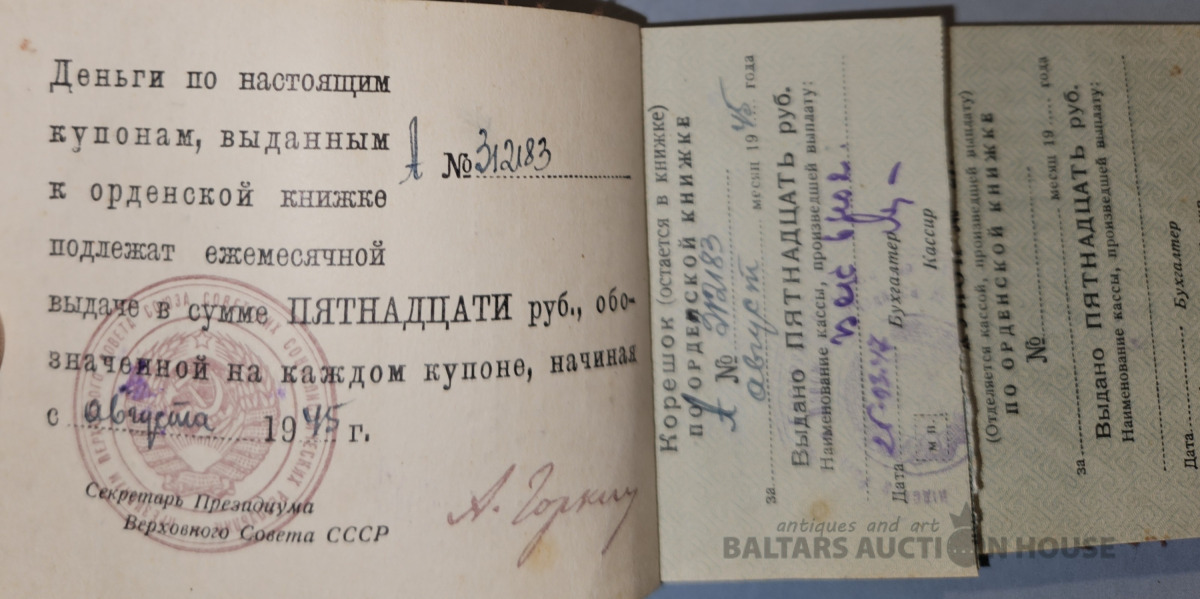 Деньги по настоящим
купонам, выданным
А № 312183
к орденской книжке
подлежат ежемесячной
выдаче в сумме ПЯТНАДЦАТИ руб., обо-
значенной на каждом купоне, начиная
с августа 1945 г.
Секретарь Президиума
Верховного Совета СССР
А. Горкин
Корешок (остается в книжке)
ПО ОРДЕНСКОЙ КНИЖКЕ
А № 312183
за август месяц 1945 года
Выдано ПЯТНАДЦАТЬ руб.
Наименование кассы, произведшей выплату:
Дата Бухгалтер
Кассир
М П.
(Отделяется кассой, произведшей выплату)
ПО ОРДЕНСКОЙ КНИЖКЕ
№
за месяц 19 года
Выдано ПЯТНАДЦАТЬ руб.
Наименование кассы, произведшей выплату:
Дата Бухгалтер
antiques and art
BALTARS AUCTION HOUSE